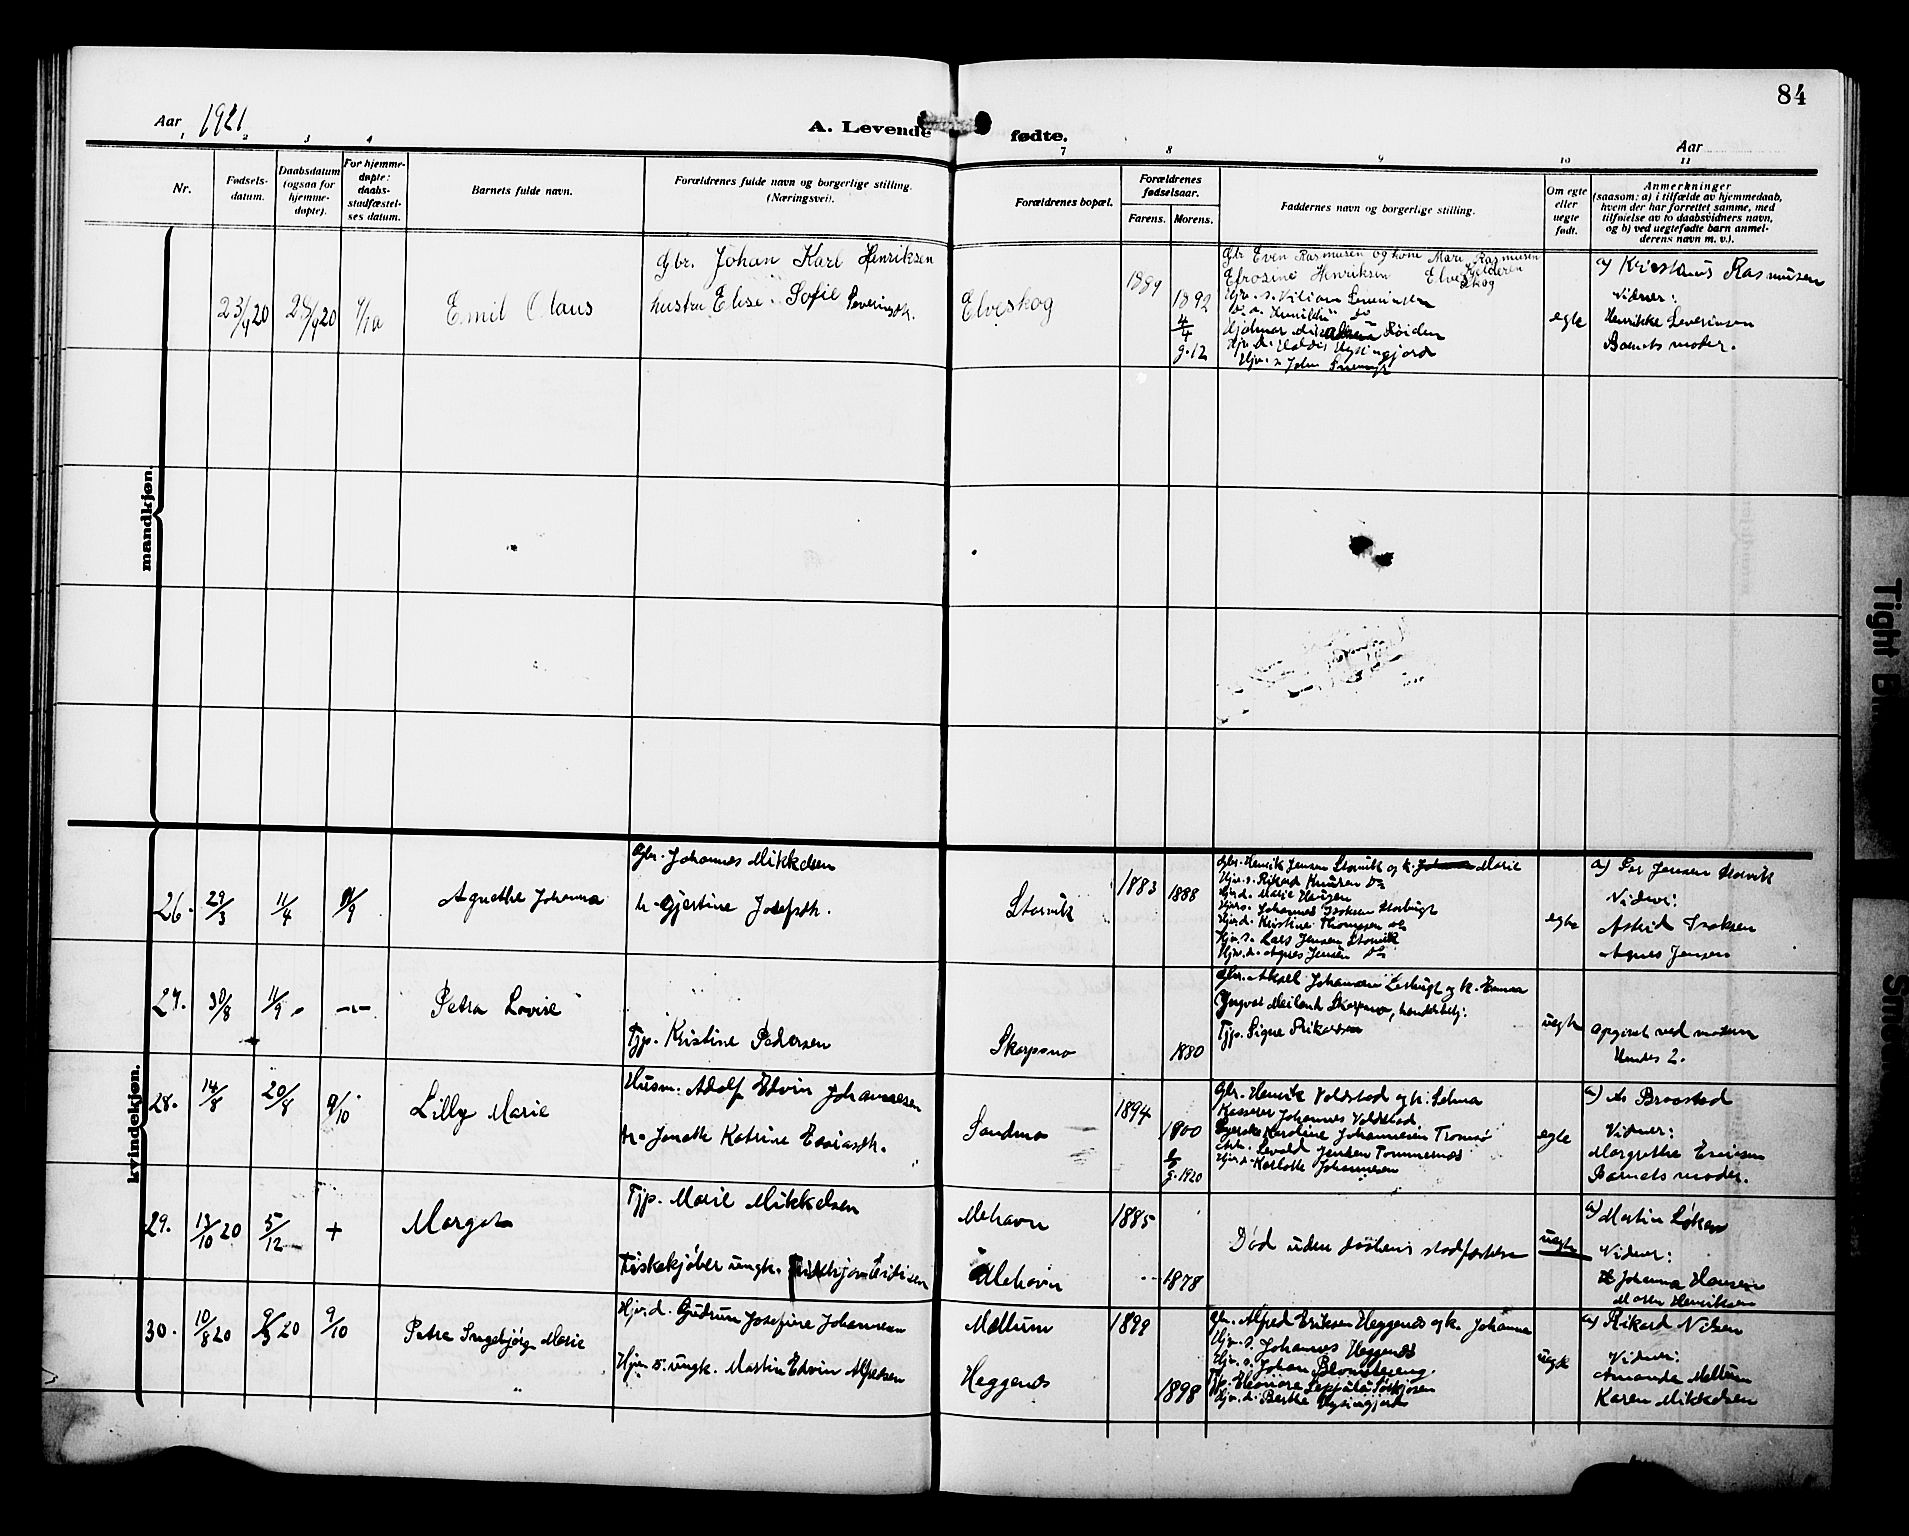 84
Aar 1921
A. Levende fødte.
Aar
1 2 3 4 7 8 9 10 11
Nr.
Fødsels-
datum.
Daabsdatum
(ogsaa for
hjemme-
døpte).
For hjemme-
døpte:
daabs-
stadfæstel-
ses datum.
Barnets fulde navn.
Forældrenes fulde navn og borgerlige stilling.
(Næringsvei).
Forældrenes bopæl.
Forældrenes
fødselsaar.
Farens. Morens.
Faddernes navn og borgerlige stilling.
Om egte
eller
uegte
født.
Anmerkninger
(saasom: a) i tilfælde av hjemmedaab,
hvem der har forrettet samme, med
tilføielse av to daabsvidners navn,
og b) ved uegtefødte barn anmel-
derens navn m. v.).
mandkjøn.
23/9 20
Emil Olaus
Gbr. Johan Karl Henriksen
hustru Elise Sofie Severinsdt.
Elveskog
1889
1892
4/4
g. 12
Gbr Even Rasmusen og kone Mari Rasmusen
Efrosine Henriksen Elveskog
egte
a) Kristians Rasmusen
Vidner:
Henrikke Severinsen
Barnets moder.
kvindekjøn.
26. 29/3 11/4 11/9
Agnethe Johanna
Gbr. Johannes Mikkelsen
h. Gjertine Josefsdt.
Storvik
1883
1888
Gbr. Henrik Jensen Storvik og k. Marie
Hjv. s. Rikard Knutsen Do
Hjv. d. Marie Hansen
Hjv. s. Johannes Isaksen Storbugt
Hjv. d. Kristine Thomesen do
Hjv. s. Lars Jensen Storvik
Hjv. d. Agnes Jensen Do
egte
a) Per Jensen Storvik
Vidner:
Astrid Isaksen
Agnes Jensen
27. 30/8 11/9 -"-
Petra Lovise
Tjp. Kristine Pedersen
Skorpsno
1880
Gbr. Aksel Johansen og k. Emma
Yngvar Meiland Skorpsno, handelsbetj:
Tjp. Signe Rikardsen
uegte
opgivet ved moderen
Hendes 2.
28. 14/8 20/8 9/10
Lilly Marie
Husm. Adolf Edvin Johannesen
h. Jenette Katrine Esaiasdt.
Sandmo
1894
1900
g. 1920
Gbr. Henrik Voldstad og h. Selma
Kasserer Johannes Voldstad
Syerske Karoline Johannesen Tromsø
Arb. Sevald Jensen Tommernes
Hjv. d. Karlotte Johannesen
egte
a) M Braastad
Vidner:
Margrethe Eriksen
Barnets moder.
29. 13/10 20 5/12 +
Margot
Tjp. Marie Mikkelsen
Fiskekjøber ungk.
Mehavn
Mehavn
1885
1878
Død uden daabens stadfæstelse
uegte
a) Martin Løkan
Vidner:
Johanna Hansen
Maren Henriksen
30. 10/8 20 20 9/10
Petra Ingebjørg Marie
Hjv. d. Gudrun Josefine Johansen
Hjv. s. ungk. Martin Edvin Alfredsen
Mellum
Heggenes
1899
1898
Gbr. Alfred Eriksen Heggenes og k. Johanna
Hjv. s. Johannes Heggenes
Hjv. s. Johan Blomstereng
Tjp. Eleonore Seppälä Sørkjosen
Hjv. d. Berthe
uegte
a) Rikard Nilsen
Vidner:
Amanda Mellum
Karen Mikkelsen